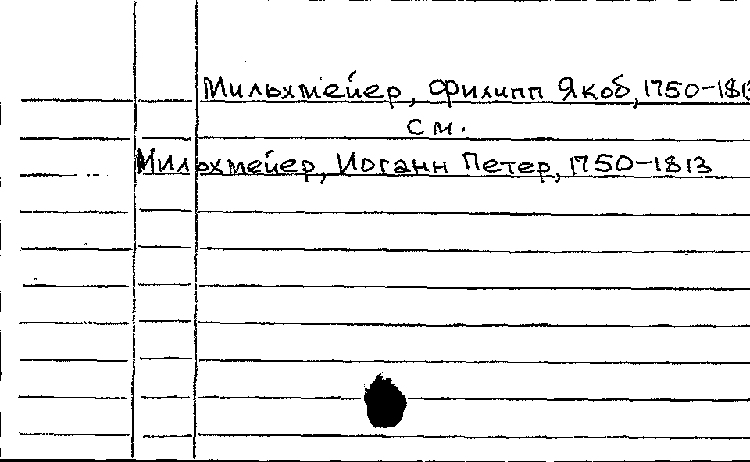 Мильхмейер, Филипп Якоб, 1750-1813
см.
Мильхмейер, Иоганн Петер, 1750-1813